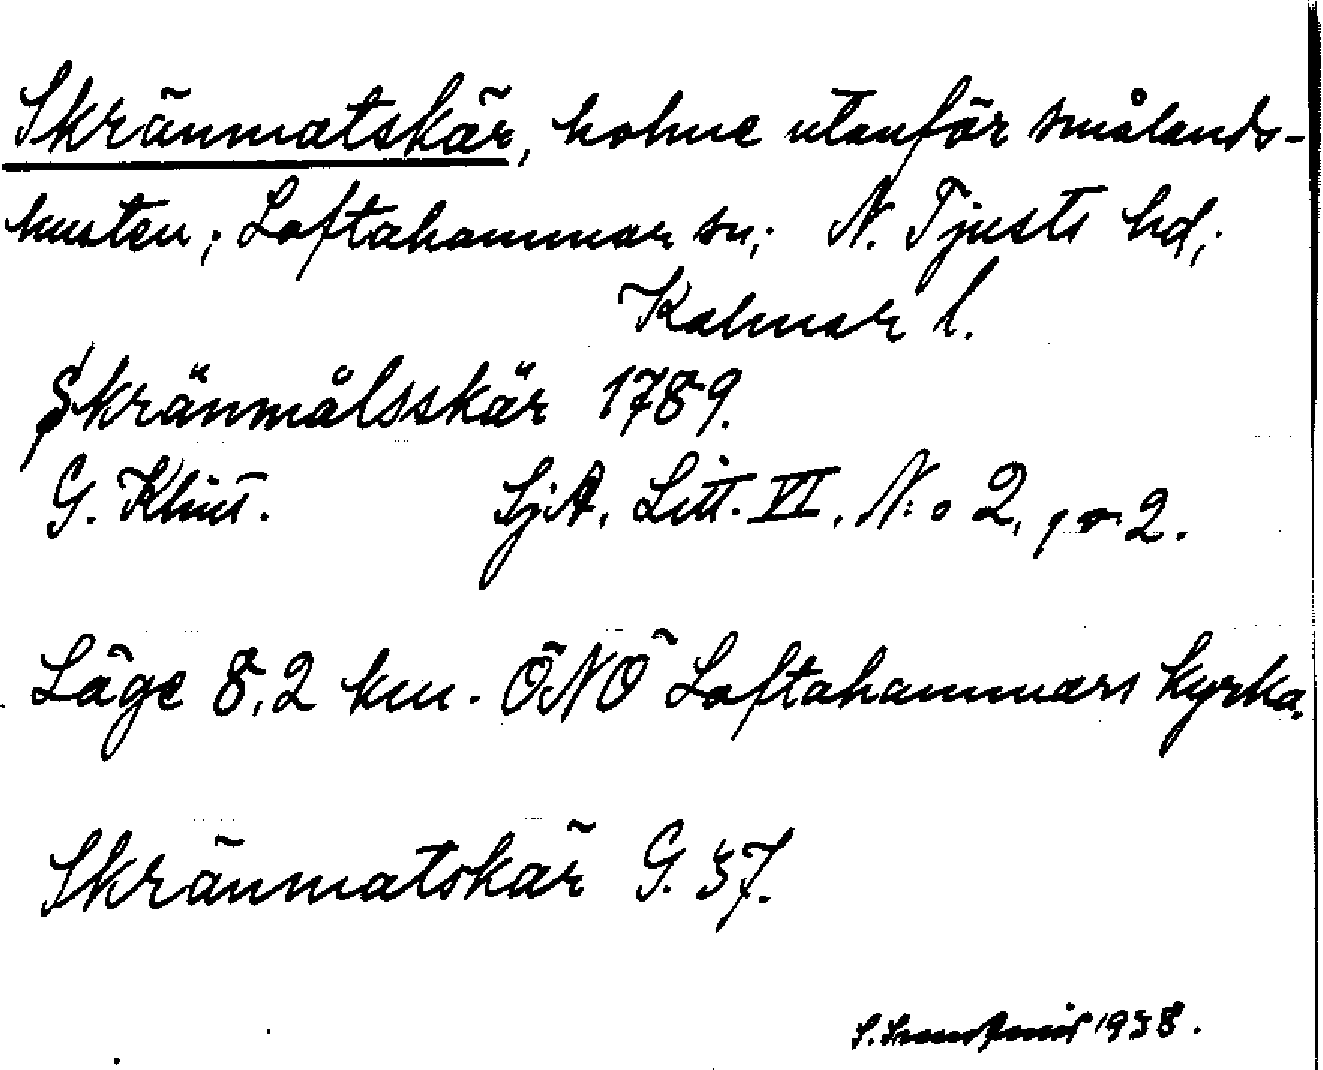 Skränmatskär, holme utanför smålands-
kusten; Loftahammar sn; N. Tjusts hd;
Kalmar l.
Skränmålsskär 1789.
G. Klint. SjA, Litt. VI, N:o 2, pr 2.
Läge 8,2 km. ÖNÖ Loftahammars kyrka.
Skränmatskär G. 37.
S. 1938.